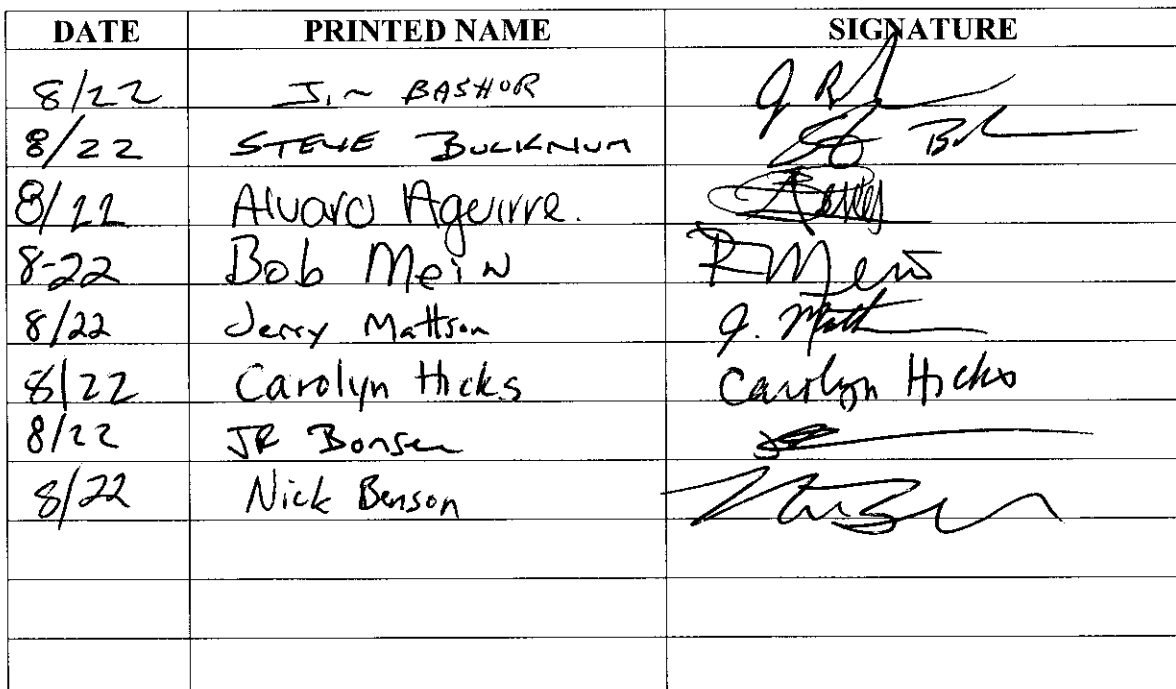 DATE PRINTED NAME SIGNATURE
8/22 Jim BASHOR
8/22 STEVE BUCKNUM
8/22 Alvaro Aguirre.
8-22 Bob Mein R Mein
8/22 Jerry Mattson J. Matt
8/22 Carolyn Hicks Carolyn Hicks
8/22 JR Bonsen
8/22 Nick Benson